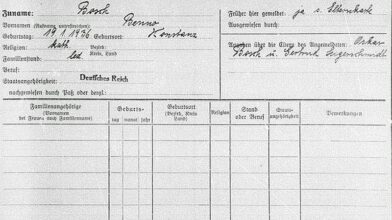 Zuname: Bosch
Vornamen (Rufname unterstreichen): Benno
Geburtstag: 19.1.1926 Geburtsort: Konstanz
Religion: kath. Bezirk: Kreis, Land
Familienstand: led.
Beruf:
Staatsangehörigkeit: Deutsches Reich
nachgewiesen durch Paß oder dergl.:
Früher hier gemeldet: ja s. Elternkarte
Angaben über die Eltern des Angemeldeten: Oskar
Bosch u. Gertrud
Familienangehörige (Vornamen der Frau u. auch Familienname)
Geburts- tag monat jahr
Geburtsort (Bezirk, Kreis Land)
Religion
Stand oder Beruf
Staats- angehörigkeit
Bemerkungen